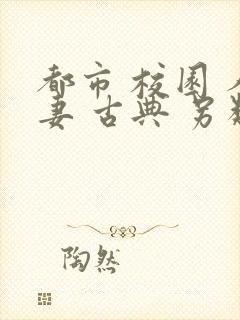 都市校园
妻古典另
陶然